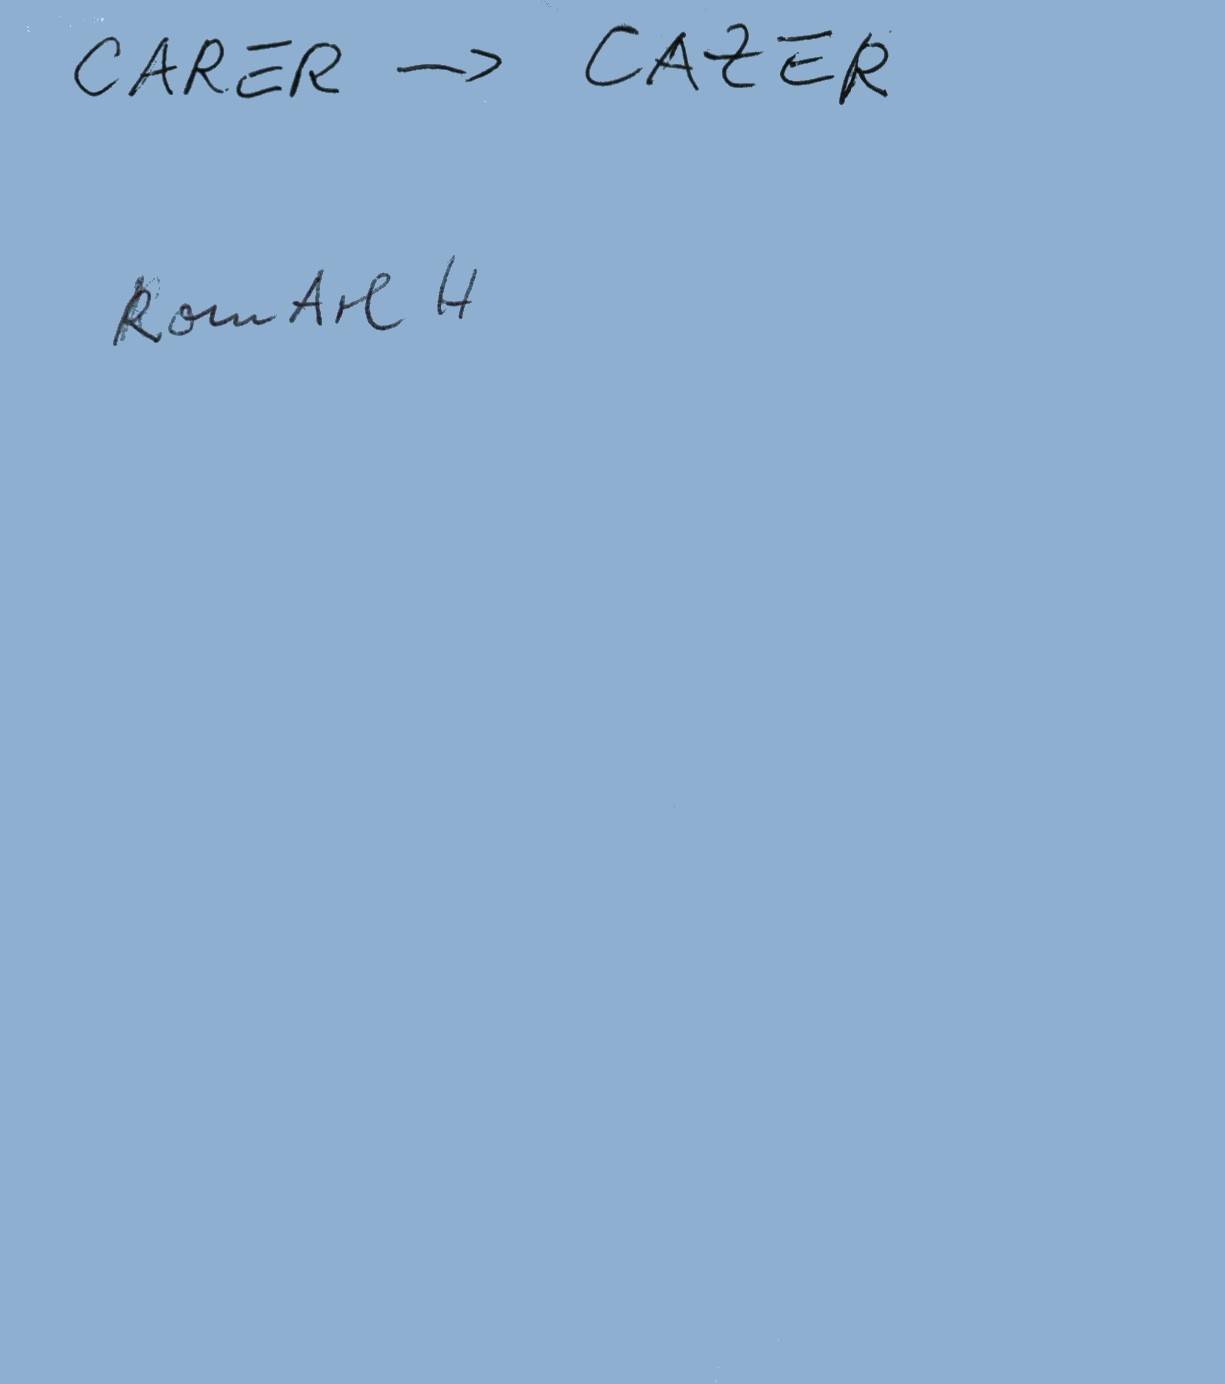 CARER → CAZER
RomArch H